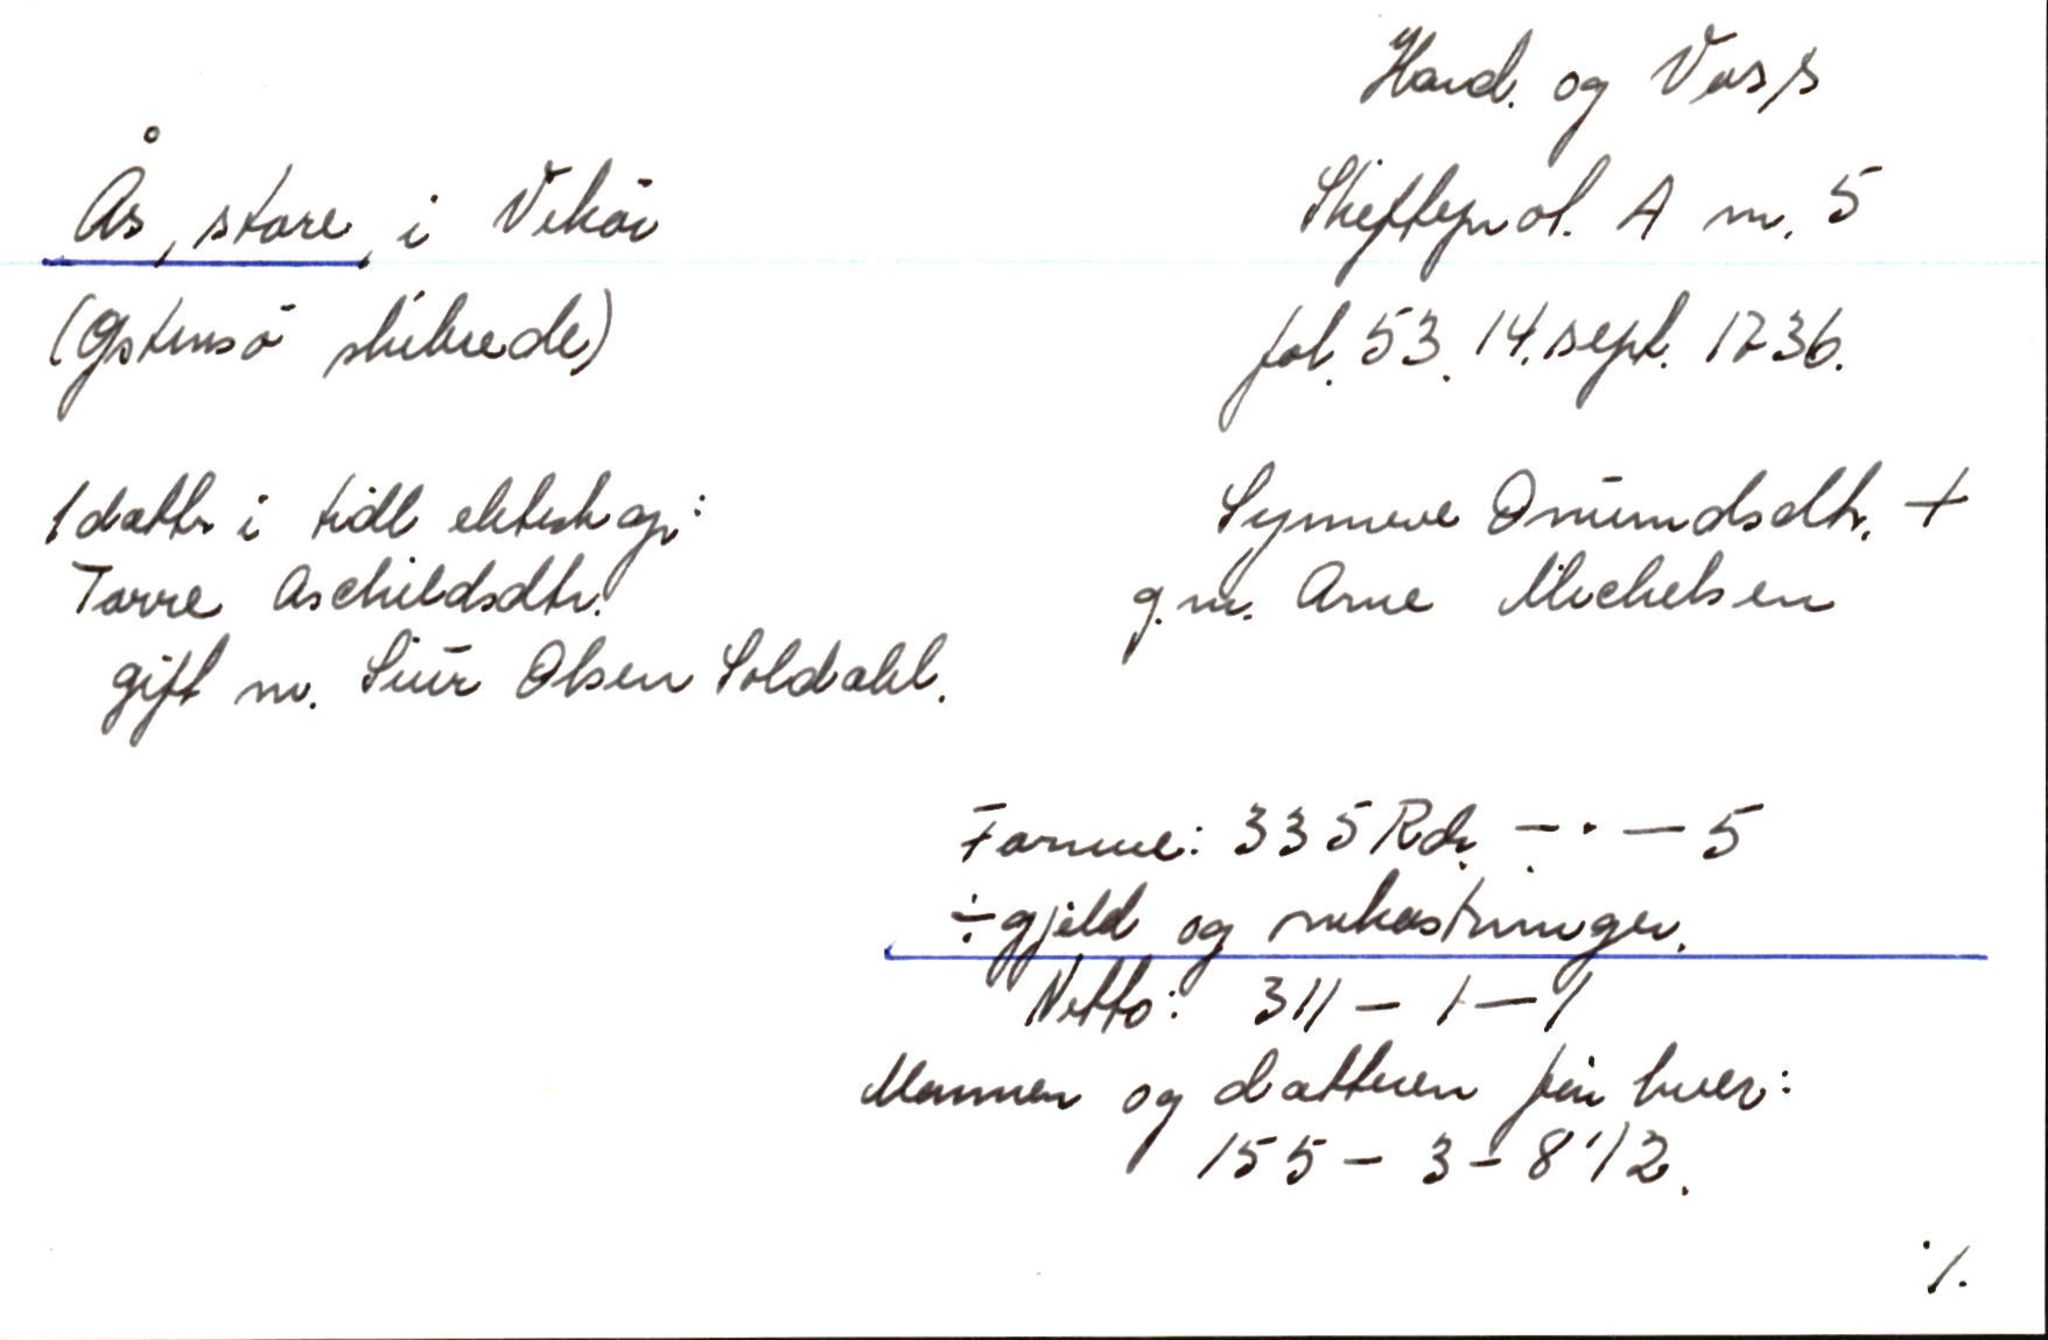 Hard. og Voss
Ås, store, i Vikør
Skifteprot. A nr. 5
(Østensø skibrede)
fol. 53. 14. sept. 1736.
1 dattr i tidl ekteskap:
Torre Aschildsdtr.
gift m. Siur Olsen Soldahl.
Synneve Onundsdtr. +
g. m. Arne Michelsen
Formue: 335 Rdr. — . — 5
÷ gjeld og omkostninger.
Netto: 311 — 1 — 1
Mannen og datteren får hver:
155 — 3 — 8 1/2.
./.